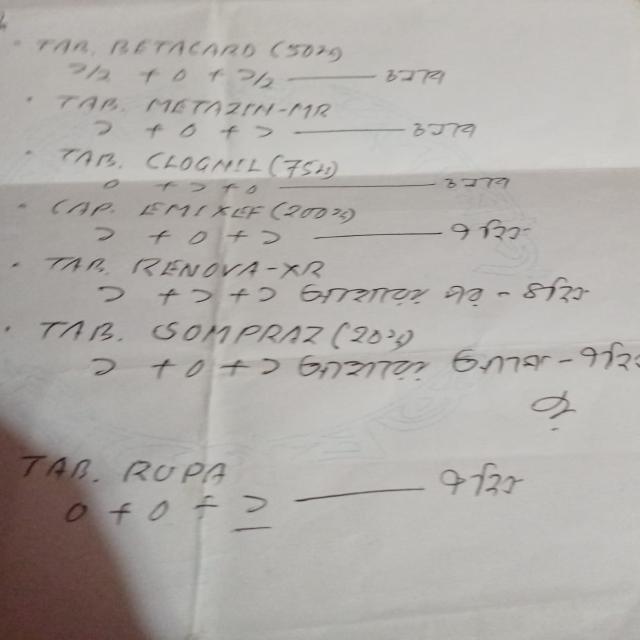 TAB. BETACARD (50মিঃ)
১/২ + ০ + ১/২ —— চলবে
TAB. METAZIN-MR
১ + ০ + ১ —— চলবে
TAB. CLOGNIL (75মিঃ)
০ + ১ + ০ —— চলবে
CAP. EMIXEF (200মিঃ)
১ + ০ + ১ —— ৭ দিন
TAB. RENOVA-XR
১ + ১ + ১ খাবারের পর -
TAB. SOMPRAZ (20মিঃ)
১ + ০ + ১ খাবারের - ৭ দিন
TAB. RUPA
০ + ০ + ১ —— ৭ দিন